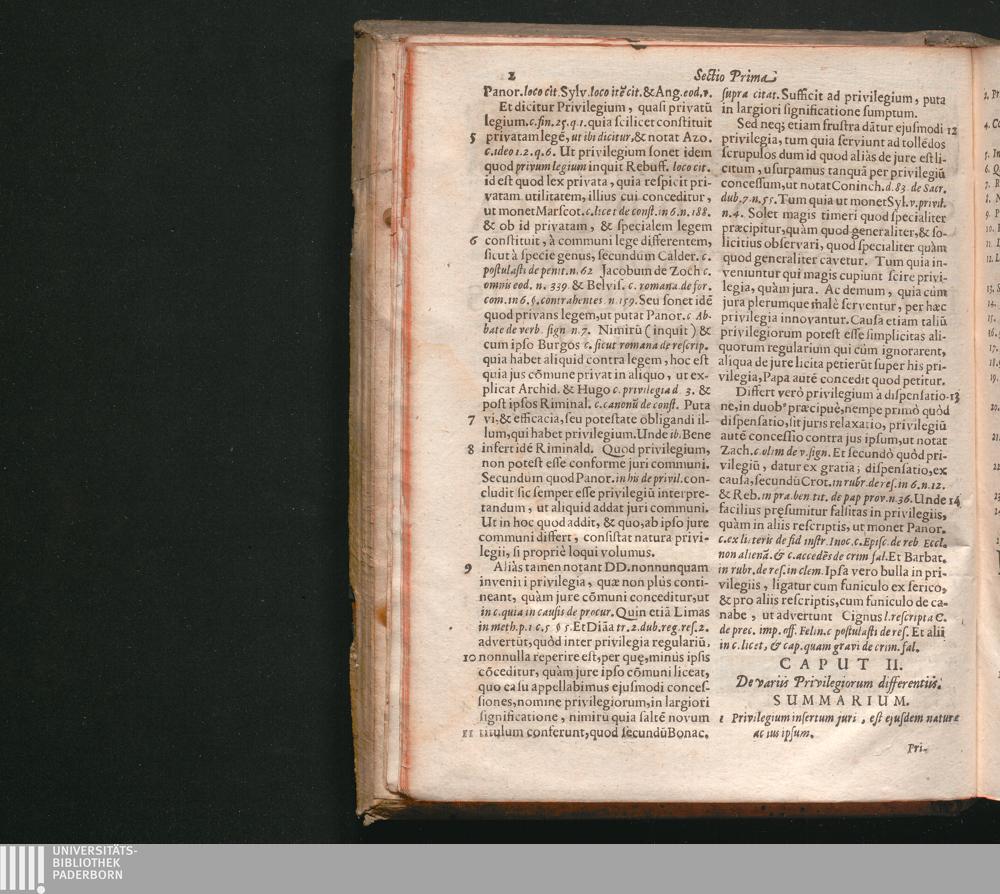 2
Sectio Prima
Panor. loco cit. Sylv. loco itē cit. & Ang. eod. v.
Et dicitur Privilegium, quasi privatū
legium. c. fin. 25. q. 1. quia scilicet constituit
5 privatam legē, ut ibi dicitur, & notat Azo.
c. ideo 1. 2. q. 6. Ut privilegium sonet idem
quod privum legium inquit Rebuff. loco cit.
id est quod lex privata, quia respicit pri-
vatam utilitatem, illius cui conceditur,
ut monet Marscot. c. licet de const. in 6. n. 188.
& ob id privatam, & specialem legem
6 constituit, à communi lege differentem,
sicut à specie genus, secundum Calder. c.
postulasti de penit. n. 62 Jacobum de Zoch c.
omnis eod. n. 339. & Belvis. c. romana de for.
com. in 6. §. contrahentes n. 159. Seu sonet idē
quod privans legem, ut putat Panor. c Ab-
bate de verb. sign n. 7. Nimirū (inquit) &
cum ipso Burgos c. sicut romana de rescrip.
quia habet aliquid contra legem, hoc est
quia jus cōmune privat in aliquo, ut ex-
plicat Archid. & Hugo c. privilegia d. 3. &
post ipsos Riminal. c. canonū de const. Puta
7 vi, & efficacia, seu potestate obligandi il-
lum, qui habet privilegium. Unde ib. Bene
8 infert idē Riminald. Quod privilegium,
non potest esse conforme juri communi.
Secundum quod Panor. in his de privil. con-
cludit sic semper esse privilegiū interpre-
tandum, ut aliquid addat juri communi.
Ut in hoc quod addit, & quo, ab ipso jure
communi differt, consistat natura privi-
legii, si propriè loqui volumus.
9 Aliàs tamen notant DD. nonnunquam
inveniri privilegia, quæ non plùs conti-
neant, quàm jure cōmuni conceditur, ut
in c. quia in causis de procur. Quin etiā Limas
in meth. p. 1 c. 5 § 5. Et Diāa tr. 2. dub. reg. res. 2.
advertūt, quòd inter privilegia regulariū,
10 nonnulla reperire est, per quę, minùs ipsis
cōceditur, quàm jure ipso cōmuni liceat,
quo casu appellabimus ejusmodi conces-
siones, nomine privilegiorum, in largiori
significatione, nimirū quia saltē novum
11 titulum conferunt, quod secundū Bonac.
supra citat. Sufficit ad privilegium, puta
in largiori significatione sumptum.
Sed neq; etiam frustra dātur ejusmodi 12
privilegia, tum quia serviunt ad tollēdos
scrupulos dum id quod aliàs de jure est li-
citum, usurpamus tanquā per privilegiū
concessum, ut notat Coninch. d. 83. de Sacr.
dub. 7. n. 55. Tum quia ut monet Syl. v. privil.
n. 4. Solet magis timeri quod specialiter
præcipitur, quàm quod generaliter, & so-
licitius observari, quod specialiter quàm
quod generaliter cavetur. Tum quia in-
veniuntur qui magis cupiunt scire privi-
legia, quàm jura. Ac demum, quia cùm
jura plerumque malè serventur, per hæc
privilegia innovantur. Causa etiam taliū
privilegiorum potest esse simplicitas ali-
quorum regularium qui cùm ignorarent,
aliqua de jure licita petierūt super his pri-
vilegia, Papa autē concedit quod petitur.
Differt verò privilegium à dispensatio- 13
ne, in duobꝰ præcipuè, nempe primò quòd
dispensatio, sit juris relaxatio, privilegiū
autē concessio contra jus ipsum, ut notat
Zach. c. olim de v. sign. Et secundò quòd pri-
vilegiū, datur ex gratia; dispensatio, ex
causa, secundū Crot. in rubr. de res. in 6. n. 12.
& Reb. in pra. ben. tit. de pap prov. n. 36. Unde 14
facilius pręsumitur falsitas in privilegiis,
quàm in aliis rescriptis, ut monet Panor.
c. ex literis de fid instr. Inoc. c. Episc. de reb. Eccl.
non alienā. & c. accedēs de crim fal. Et Barbat.
in rubr. de res. in clem. Ipsa vero bulla in pri-
vilegiis, ligatur cum funiculo ex serico,
& pro aliis rescriptis, cum funiculo de ca-
nabe, ut advertunt Cignus l. rescripta C.
de prec. imp. off. Felin. c postulasti de res. Et alii
in c. licet, & cap. quam gravi de crim. fal.
CAPUT II.
De variis Privilegiorum differentiis.
SUMMARIUM.
1 Privilegium insertum juri, est ejusdem naturæ
ac ius ipsum.
Pri-
UNIVERSITÄTS-
BIBLIOTHEK
PADERBORN